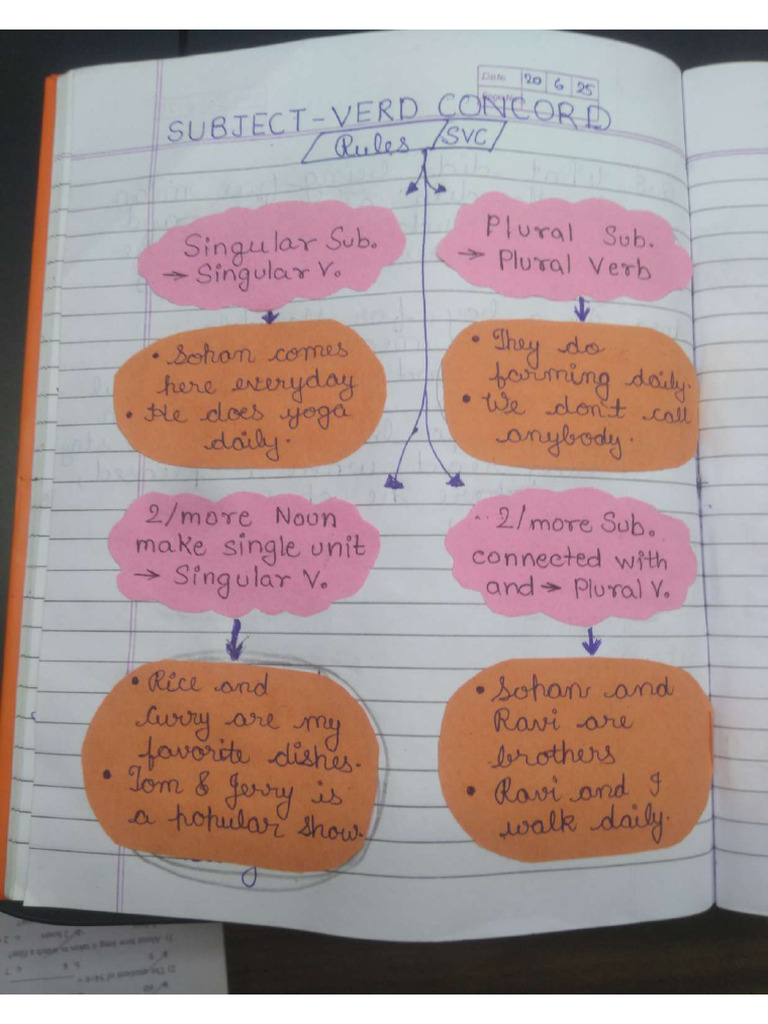 Date 20 6 25
SUBJECT-VERD CONCORD
Rules SVC
Singular Sub.
→ Singular V.
Plural Sub.
→ Plural Verb
• Sohan comes
here everyday
• He does yoga
daily.
• They do
farming daily.
• We don't call
anybody.
2/more Noun
make single unit
→ Singular V.
2/more Sub.
connected with
and → Plural V.
• Rice and
Curry are my
favorite dishes.
• Tom & Jerry is
a popular show.
• Sohan and
Ravi are
brothers
• Ravi and I
walk daily.